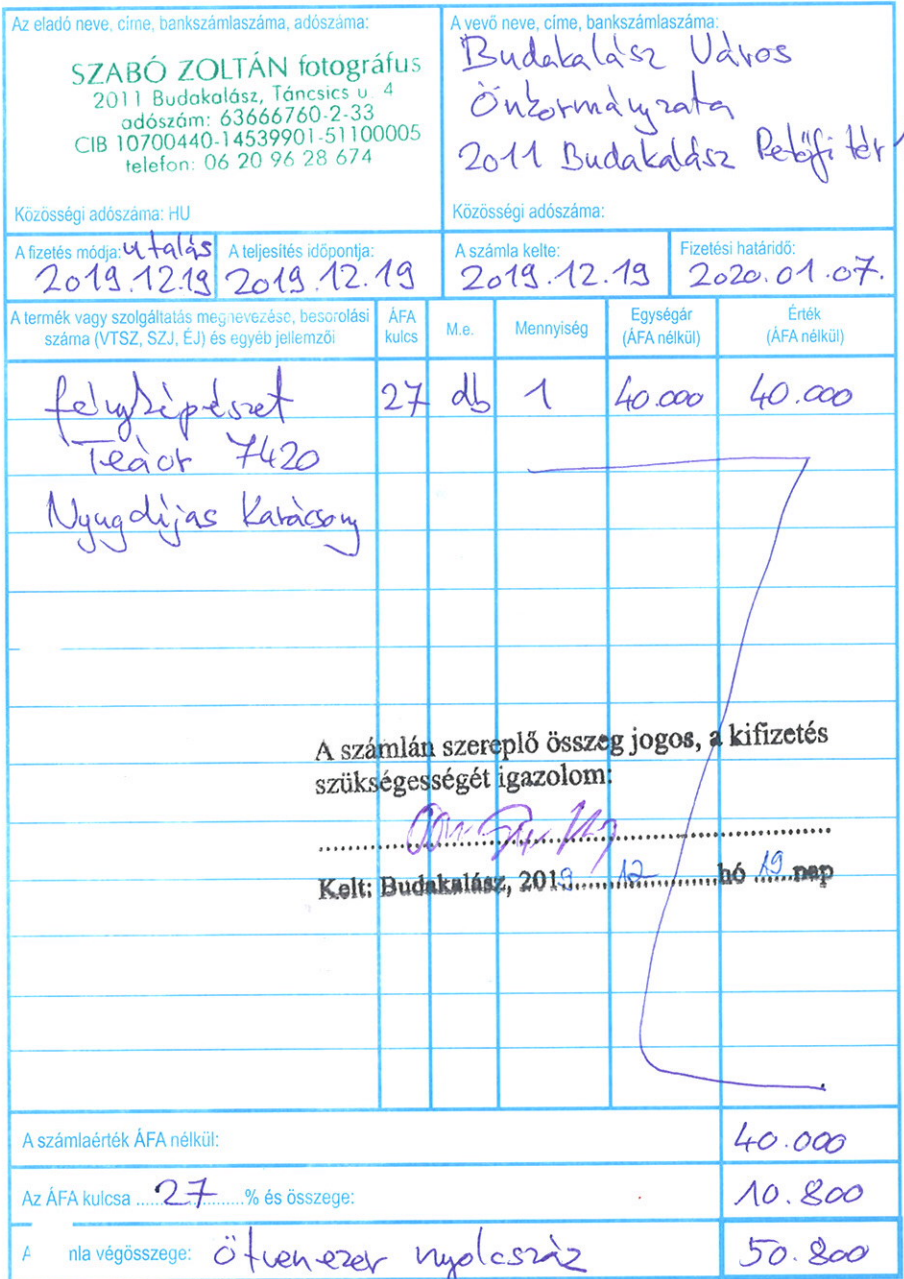 Az eladó neve, címe, bankszámlaszáma, adószáma:
SZABÓ ZOLTÁN fotográfus
2011 Budakalász, Táncsics u. 4
adószám: 63666760-2-33
CIB 10700440-14539901-51100005
telefon: 06 20 96 28 674
Közösségi adószáma: HU
A vevő neve, címe, bankszámlaszáma:
Budakalász Város
Önkormányzata
2011 Budakalász Petőfi tér
Közösségi adószáma:
A fizetés módja: utalás
2019.12.19
A teljesítés időpontja:
2019.12.19
A számla kelte:
2019.12.19
Fizetési határidő:
2020.01.07.
A termék vagy szolgáltatás megnevezése, besorolási
száma (VTSZ, SZJ, ÉJ) és egyéb jellemzői
ÁFA
kulcs
M.e.
Mennyiség
Egységár
(ÁFA nélkül)
Érték
(ÁFA nélkül)
fényképészet 27 db 1 40.000 40.000
Teáor 7420
Nyugdíjas Karácsony
A számlán szereplő összeg jogos, a kifizetés
szükségességét igazolom:
Kelt: Budakalász, 2019 12 hó 19 nap
A számlaérték ÁFA nélkül: 40.000
Az ÁFA kulcsa 27 % és összege: 10.800
A nla végösszege: ötvenezer nyolcszáz 50.800